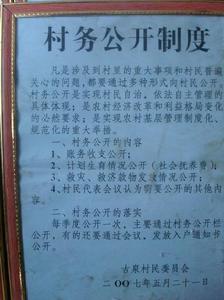 村务公开制度
凡是涉及到村里的重大事项和村民普遍
关心的问题，都要通过多种形式向村民公开。
村务公开是实现村民自治，依法自主管理的
具体体现；是农村经济改革和利益格局变化
的必然要求；是实现农村基层管理制度化、
规范化的重大举措。
一、村务公开的内容
1、账务收支公开；
2、计划生育情况公开（社会抚养费）；
3、救灾、救济款物发放情况公开；
4、村民代表会议认为需要公开的其他内
容。
二、村务公开的落实
每季度公开一次，主要通过村务公开栏
公开，有的还要通过会议，发放入户通知书
公开。
古泉村民委员会
二〇〇七年五月二十一日